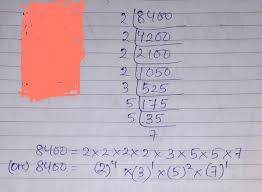 2 | 8400
2 | 4200
2 | 2100
2 | 1050
3 | 525
5 | 175
5 | 35
7
8400 = 2×2×2×2×3×5×5×7
(or) 8400 = (2)⁴ ×(3)¹ ×(5)² ×(7)¹